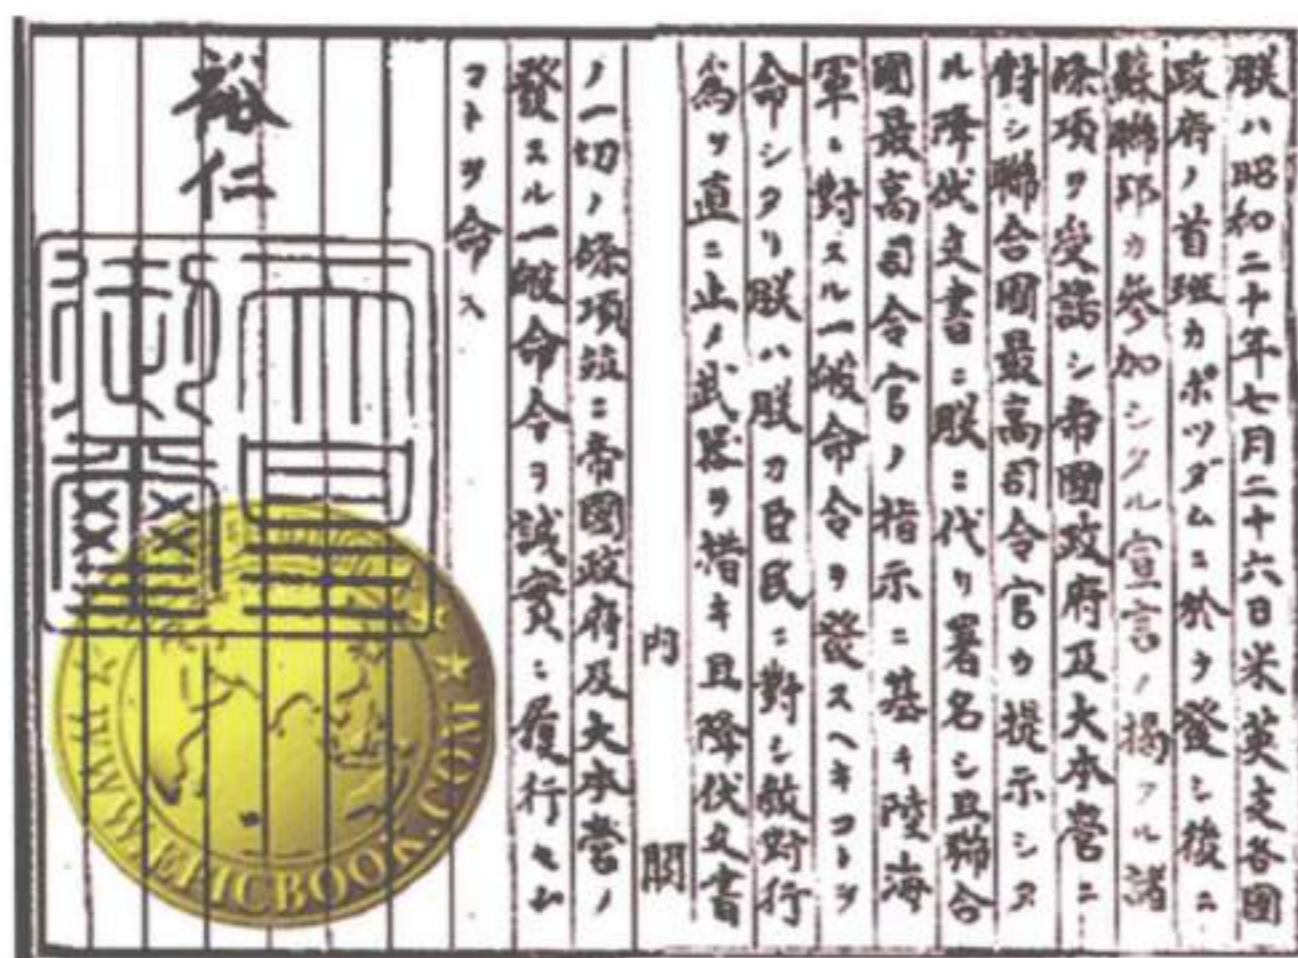 朕ハ昭和二十年七月二十六日米英支各國
政府ノ首班カポツダムニ於テ發シ後ニ
蘇聯邦カ參加シタル宣言ノ掲クル諸
條項ヲ受諾シ帝國政府及大本營ニ
對シ聯合國最高司令官カ提示シタ
ル降伏文書ニ朕ニ代リ署名シ且聯合
國最高司令官ノ指示ニ基キ陸海
軍ニ對スル一般命令ヲ發スヘキコトヲ
命シタリ朕ハ朕カ臣民ニ對シ敵對行
爲ヲ直ニ止メ武器ヲ措キ且降伏文書
內閣
ノ一切ノ條項竝ニ帝國政府及大本營ノ
發スル一般命令ヲ誠實ニ履行セム
コトヲ命ス
裕仁
天皇
御璽
WWW.EPICBOOK.COM